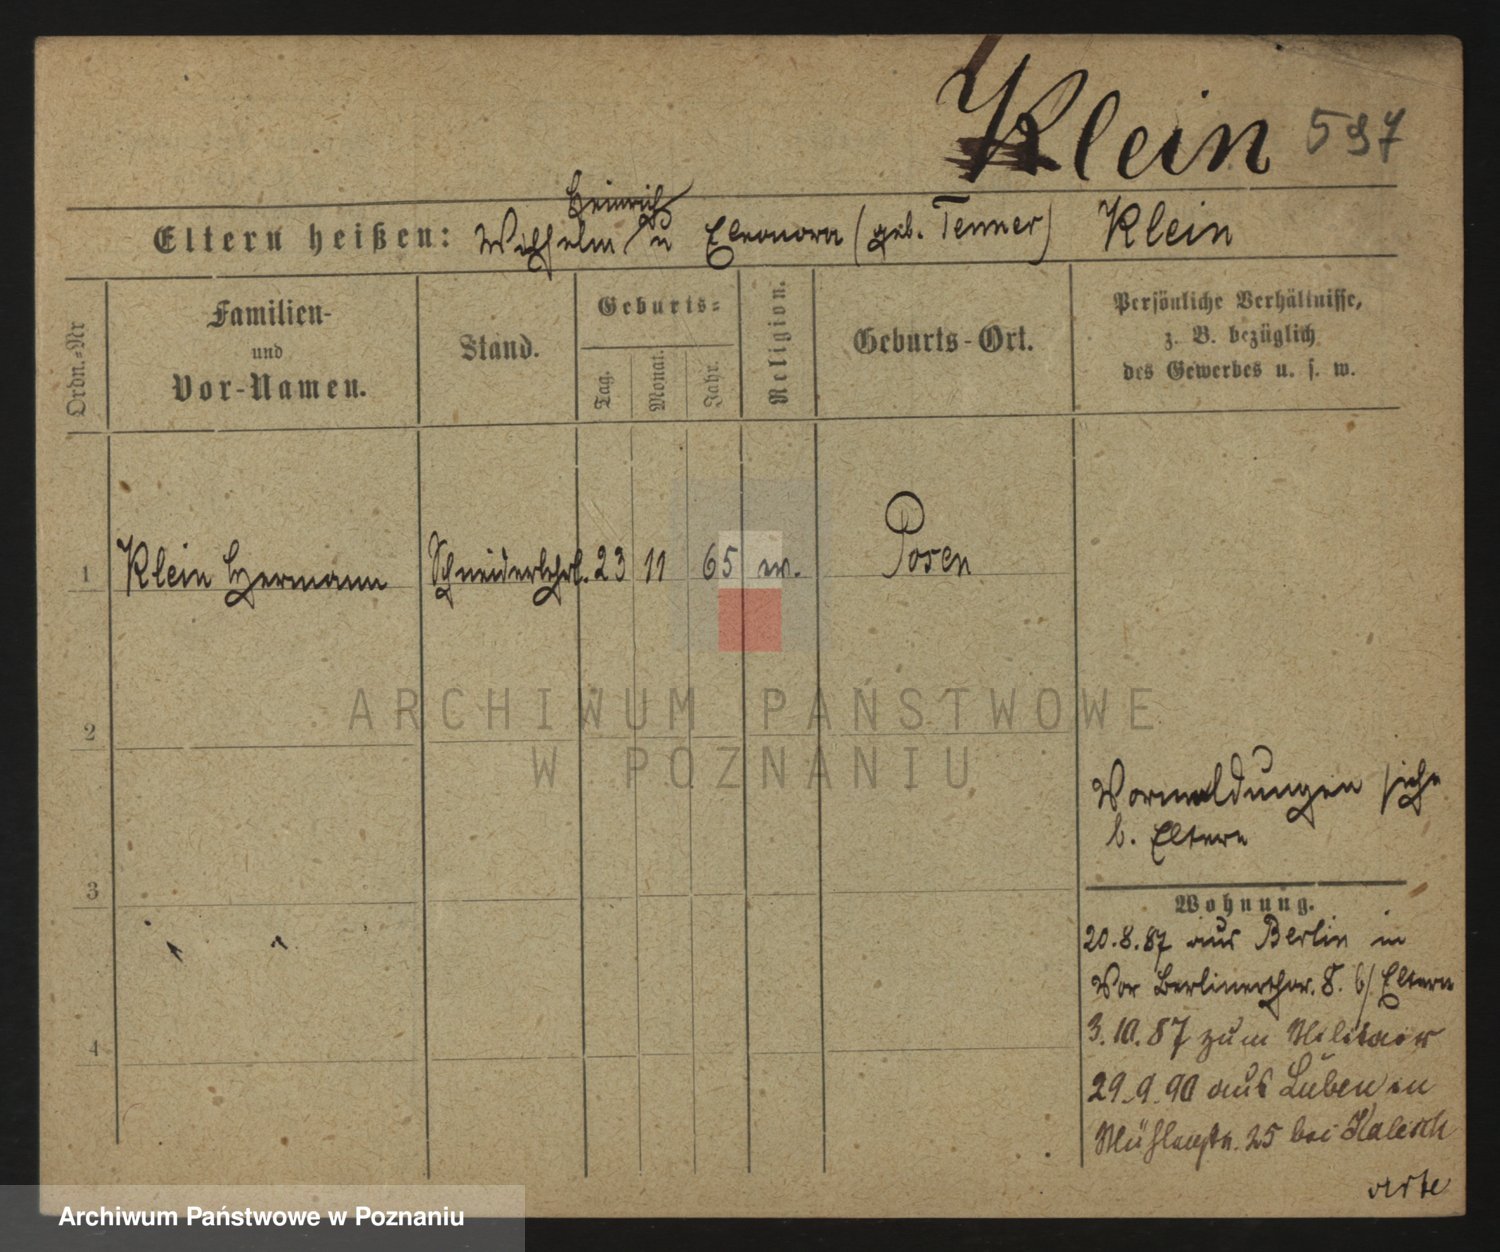 Klein 597
Heinrich
Eltern heißen: Wilhelm / u Eleonora (geb. Tenner) Klein
Ordn.-Nr
Familien-
und
Vor-Namen.
Stand.
Geburts-
Tag.
Monat.
Jahr.
Religion.
Geburts-Ort.
Persönliche Verhältnisse,
z. B. bezüglich
des Gewerbes u. s. w.
1 Klein Hermann Schneiderlehrl. 23 11 65 ev. Posen
2
3
4
Vormeldungen siehe
b. Eltern
Wohnung.
20.8.87 aus Berlin in
Vor Berlinerthor. 8. b/ Eltern
3.10.87 zum Militaer
29.9.90 aus Lüben in
Mühlenstr. 25 bei
verte
ARCHIWUM PAŃSTWOWE
W POZNANIU
Archiwum Państwowe w Poznaniu